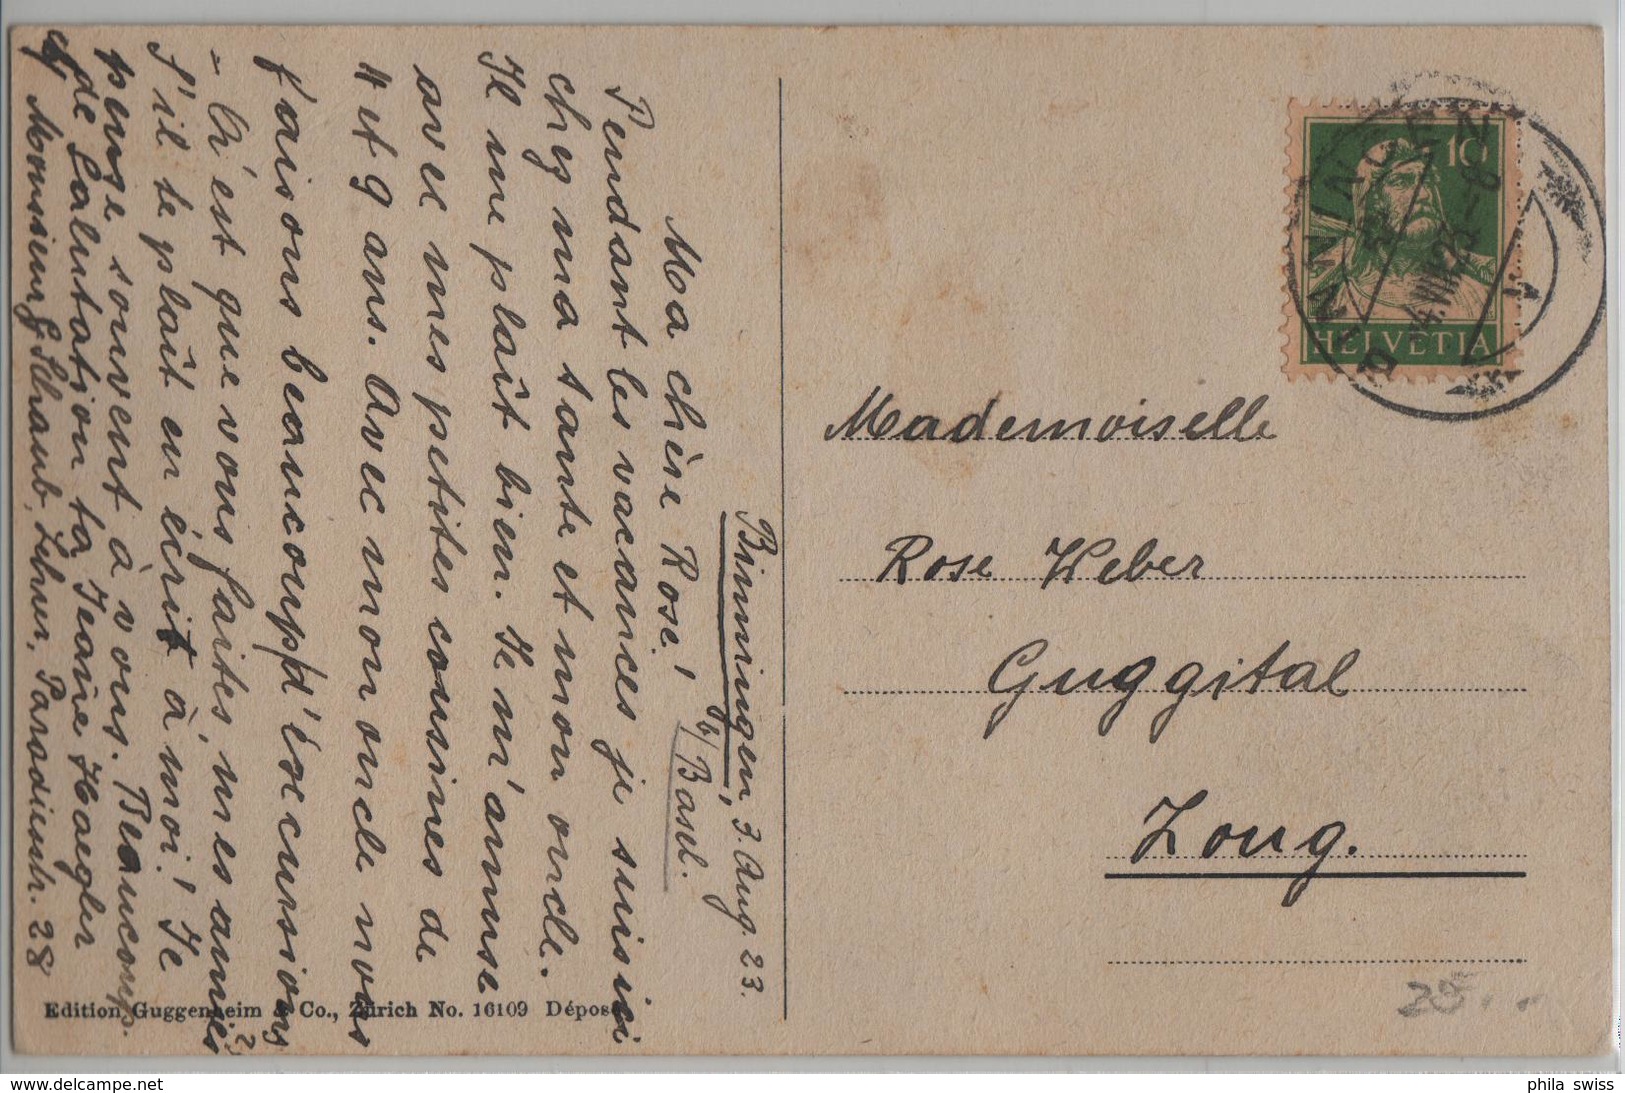 Binningen, 3. Aug. 23.
b/Basel.
Ma chère Rose!
Pendant les vacances je suis ici
chez ma tante et mon oncle.
Il me plaît bien. Je m'amuse
avec mes petites cousines de
4 et 9 ans. Avec mon oncle nous
faisons beaucoup d'éxcursions
- Qu'est que vous faites, mes amies?
S'il te plaît en écrit à moi! Je
pense souvent à vous. Beaucoup
de Salutation ta Jeane Haegler
Monsieur G. Schaub, Lehrer, Paradiesstr. 28
Edition Guggenheim & Co., Zürich No. 16109 Déposé
Mademoiselle
Rose Weber
Guggital
Zoug.
10
HELVETIA
BINNINGEN
-4.VIII.23-8
28.-
phila swiss